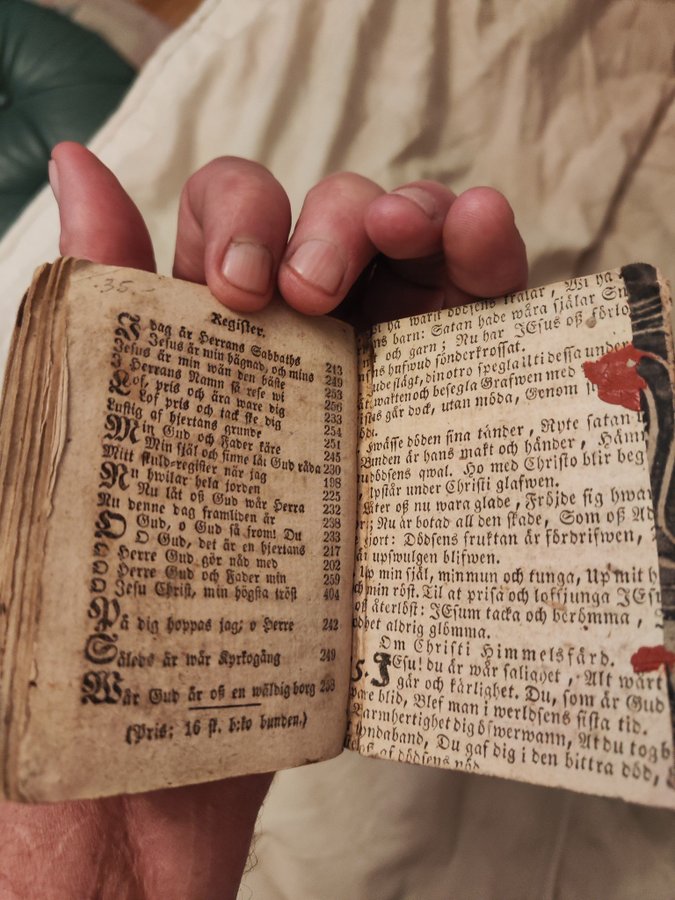 35.
Register.
I dag är Herrans Sabbaths 213
Jesus är min hägnad, och mins 249
Jesus är min wän den bäste 253
I Herrans Namn så rese wi 256
Lof, pris och ära ware dig 233
Lof pris och tack ske dig 254
Lustig af hjertans grunde 251
Min Gud och Fader käre 245
Min själ och sinne låt Gud råda 230
Mitt skuld-register när jag 198
Nu hwilar hela jorden 225
Nu låt oß Gud wår HErra 232
Nu denne dag framliden är 238
O Gud, o Gud så from! Du 233
O Gud, det är en hjertans 217
O Herre Gud gör nåd med 202
O Herre Gud och Fader min 259
O Jesu Christ, min högsta tröst 404
På dig hoppas jag, o Herre 242
Såleds är wår Kyrkogång 249
Wår Gud är oß en wäldig borg 258
(Pris: 16 ß. b:ko bunden.)
ya warit dödsens trälar, Wi ha
barn: Satan hade wåra själar
och garn; Nu har JEsus oß
hufwud sönderkrossat.
slägt, din otro spegla i dessa under
wakten och besegla Grafwen med
går dock, utan möda, Genom
hwässe döden sina tänder, Ryte satan
Bunden är hans makt och händer,
dödsens qwal. Ho med Christo blir
Upstår under Christi glafwen.
åter oß nu wara glade, Fröjde sig
Nu är botad all den skade, Som oß
gjort: Dödsens fruktan är fördrifwen,
upswulgen blifwen.
Up min själ, min mun och tunga, Up mit
min röst. Til at prisa och lofsjunga
oß återlöst: JEsum tacka och berömma,
aldrig glömma.
Om Christi Himmelsfärd.
5. JEsu! du är wår salighet, Alt wårt
går och kärlighet. Du, som är Gud
blid, Blef man i werldsens sista tid.
Barmhertighet dig öfwerwann, At du tog
Du gaf dig i den bittra död,
af dödsens nöd